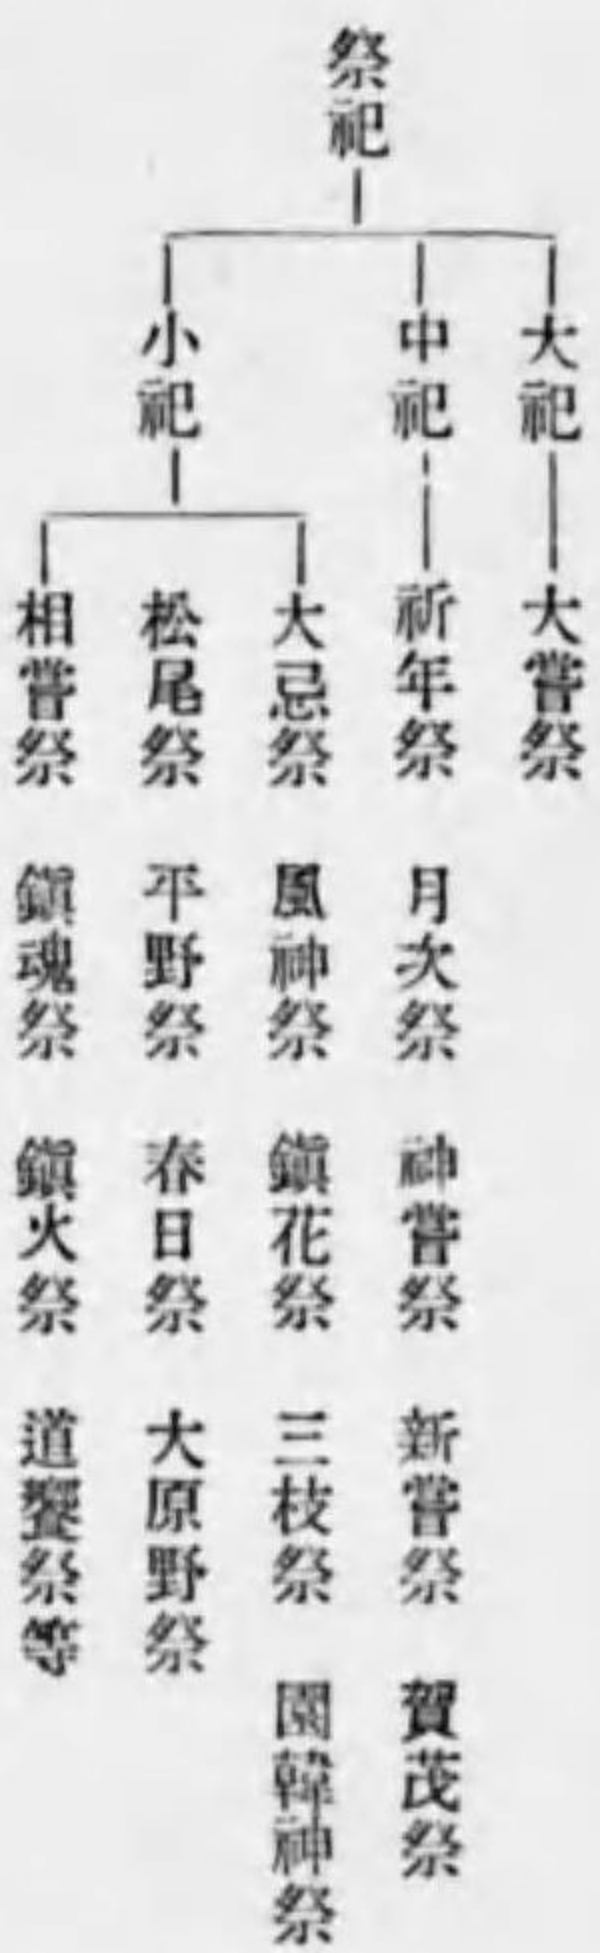 祭祀
大祀
大嘗祭
中祀
祈年祭 月次祭 神嘗祭 新嘗祭 賀茂祭
小祀
大忌祭 風神祭 鎭花祭 三枝祭 園韓神祭
松尾祭 平野祭 春日祭 大原野祭
相嘗祭 鎭魂祭 鎭火祭 道饗祭等